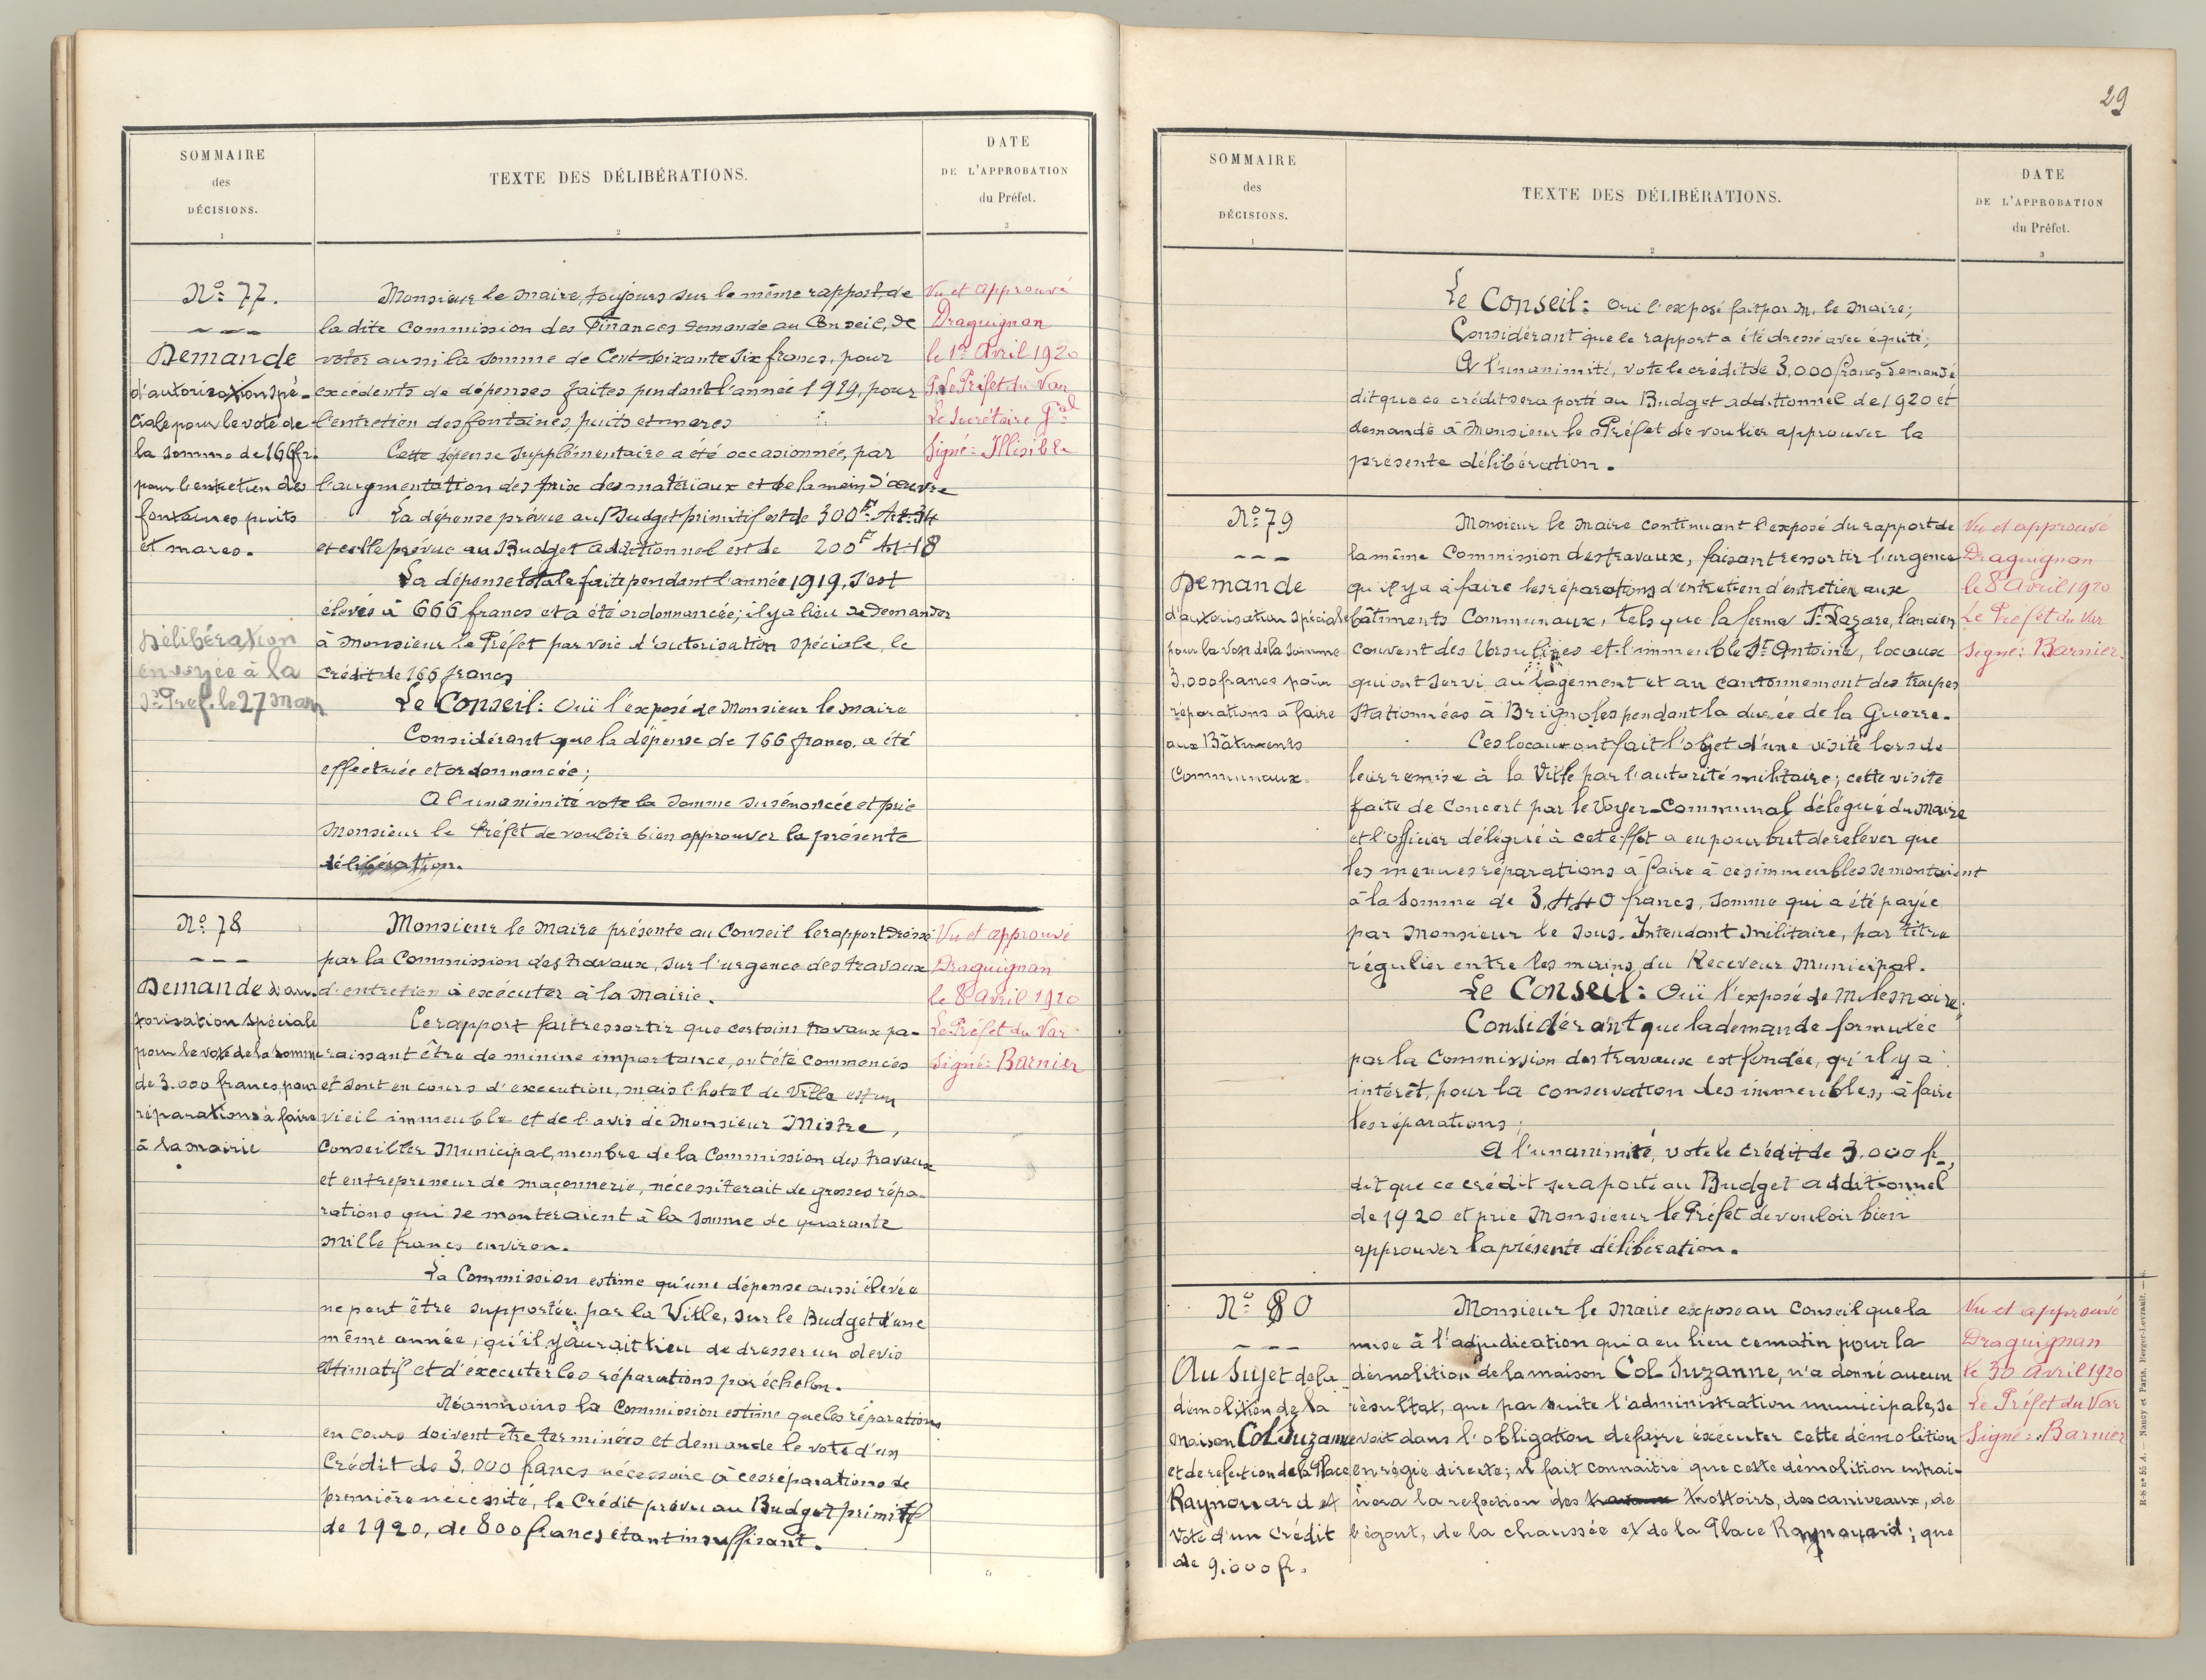 SOMMAIRE
des
DÉCISIONS.
1
TEXTE DES DÉLIBÉRATIONS.
2
DATE
DE L'APPROBATION
du Préfet.
3
No 77.
Demande
d'autorisation spé-
ciale pour le vote de
la somme de 166 fr.
pour l'entretien des
fontaines puits
et mares.
Délibération
envoyée à la
Ss Préf. le 27 mars
Monsieur le maire, toujours sur le même rapport de
la dite Commission des Finances demande au Conseil, de
voter aussi la somme de Cent soixante six francs, pour
excédents de dépenses faites pendant l'année 1919, pour
l'entretien des fontaines, puits et mares
Cette dépense supplémentaire a été occasionnée, par
l'augmentation des prix des matériaux et de la main d'œuvre
La dépense prévue au Budget primitif est de 300 fr Art. 34
et celle prévue au Budget additionnel est de 200 fr Art 18
La dépense totale faite pendant l'année 1919, s'est
élevée à 666 francs et a été ordonnancée; il y a lieu de demander
à Monsieur le Préfet par voie d'autorisation spéciale, le
crédit de 166 francs
Le Conseil: Ouï l'exposé de Monsieur le maire
Considérant que la dépense de 166 francs. a été
effectuée et ordonnancée;
A l'unanimité vote la somme susénoncée et prie
Monsieur le Préfet de vouloir bien approuver la présente
délibération.
Vu et approuvé
Draguignan
le 1er Avril 1920
P. Le Préfet du Var
Le Secrétaire Gal
Signé: Illisible
No 78
Demande d'au-
torisation spéciale
pour le vote de la somme
de 3.000 francs, pour
réparations à faire
à la mairie
Monsieur le Maire présente au Conseil le rapport dressé
par la Commission des travaux, sur l'urgence des travaux
d'entretien à exécuter à la Mairie.
Ce rapport fait ressortir que certains travaux pa-
raissant être de minine importance, ont été commencés
et sont en cours d'execution, mais l'hotel de Ville est un
vieil immeuble et de l'avis de Monsieur Mistre,
Conseiller Municipal, membre de la Commission des travaux
et entrepreneur de maçonnerie, nécessiterait de grosses répa-
rations qui se monteraient à la somme de quarante
mille francs environ.
La Commission estime qu'une dépense aussi élevée
ne peut être supportée par la Ville, sur le Budget d'une
même année, qu'il y aurait lieu de dresser un devis
estimatif et d'executer les réparations par échelon.
Néanmoins la Commission estime que les réparations
en cours doivent être terminées et demande le vote d'un
Crédit de 3.000 francs nécessaire à ces réparations de
première nécessité, le Crédit prévu au Budget primitif
de 1920, de 800 francs étant insuffisant.
Vu et approuvé
Draguignan
le 8 avril 1920
Le Préfet du Var
Signé: Barnier
29
SOMMAIRE
des
DÉCISIONS.
1
TEXTE DES DÉLIBÉRATIONS.
2
DATE
DE L'APPROBATION
du Préfet.
3
Le Conseil: Oui l'exposé fait par M. le Maire;
Considérant que le rapport a été dressé avec équité;
A l'unanimité, vote le crédit de 3.000 francs demandé
dit que ce crédit sera porté au Budget additionnel de 1920 et
demande à Monsieur le Préfet de voulier approuver la
présente délibération.
No 79
Demande
d'autorisation spéciale
pour la vote de la somme
3.000 francs pour
réparations à faire
aux Bâtiments
Communaux.
Monsieur le Maire continuant l'exposé du rapport de
la même Commission des travaux, faisant ressortir l'urgence
qu'il y a à faire les réparations d'entretien d'entretien aux
bâtiments Communaux, tels que la ferme St Lazare, l'ancien
couvent des Ursulines et l'immeuble St Antoine, locaux
qui ont servi au logement et au cantonnement des troupes
stationnées à Brignoles pendant la durée de la Guerre.
Ces locaux ont fait l'objet d'une visite lors de
leur remise à la Ville par l'autorité militaire; cette visite
faite de concert par le Voyer-Communal délégué du Maire
et l'officier délégué à cet effet a eu pour but de relever que
les menues réparations à faire à ces immeubles se montaient
à la somme de 3.440 francs, somme qui a été payée
par Monsieur le Sous-Intendant Militaire, par titre
régulier entre les mains du Receveur Municipal.
Le Conseil: Ouï l'exposé de M. le Maire;
Considérant que la demande formulée
par la Commission des travaux est fondée, qu'il y a
intérêt, pour la conservation des immeubles, à faire
les réparations;
A l'unanimité, vote le crédit de 3.000 fr.,
dit que ce crédit sera porté au Budget additionnel
de 1920 et prie Monsieur le Préfet de vouloir bien
approuver la présente délibération.
Vu et approuvé
Draguignan
le 8 Avril 1920
Le Préfet du Var
Signé: Barnier.
No 80
Au Sujet de la
démolition de la
maison Col Suzanne
et de refection de la Place
Raynouard et
vote d'un crédit
de 9.000 fr.
Monsieur le Maire expose au Conseil que la
mise à l'adjudication qui a eu lieu ce matin pour la
démolition de la maison Col Suzanne, n'a donné aucun
résultat, que par suite l'administration municipale, se
voit dans l'obligation de faire éxécuter cette démolition
en régie directe; il fait connaître que cette démolition entrai-
nera la refection des travaux trottoirs, des caniveaux, de
l'égout, de la chaussée et de la Place Raynouard; que
Vu et approuvé
Draguignan
le 30 Avril 1920
Le Préfet du Var
Signé: Barnier
Nancy et Paris, Berger-Levrault.